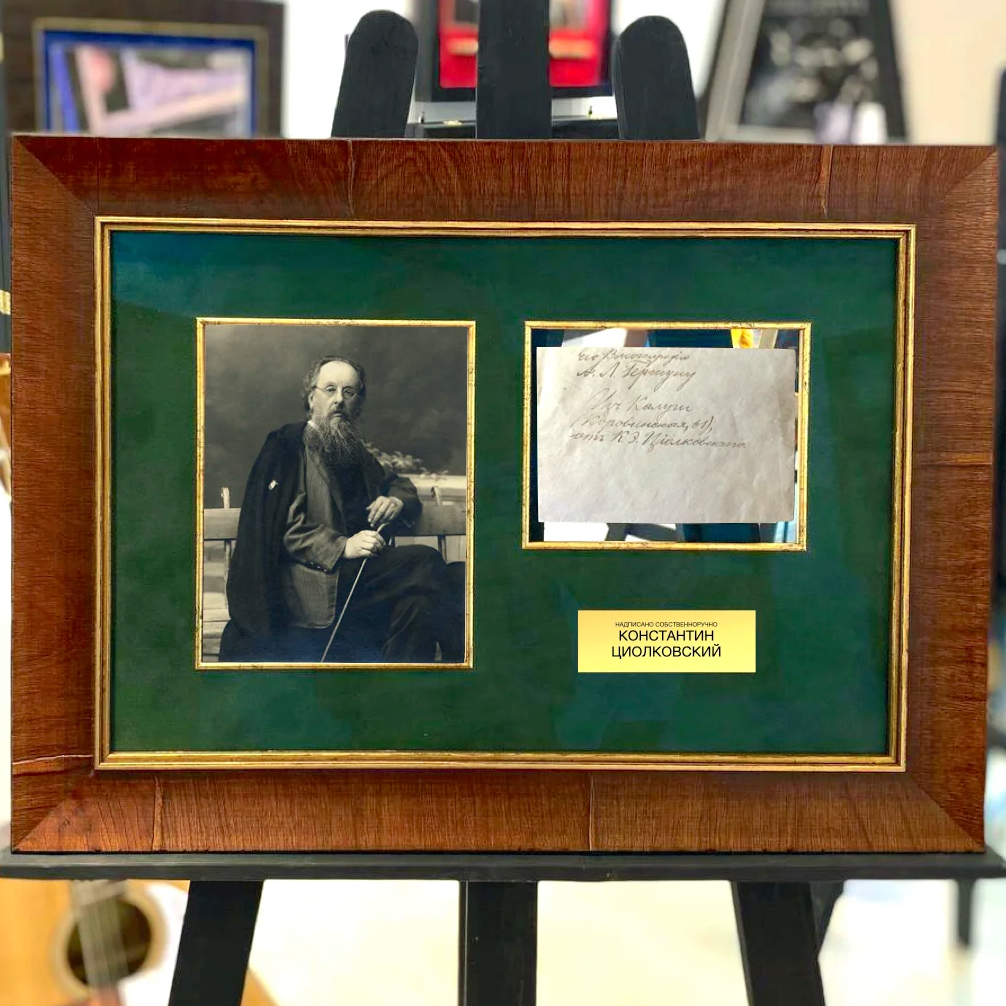 Его Высокородію
А. Л. Гершуну
Изъ Калуги
(Коровинская, 61),
отъ К. Э. Ціолковскаго
НАДПИСАНО СОБСТВЕННОРУЧНО
КОНСТАНТИН
ЦИОЛКОВСКИЙ